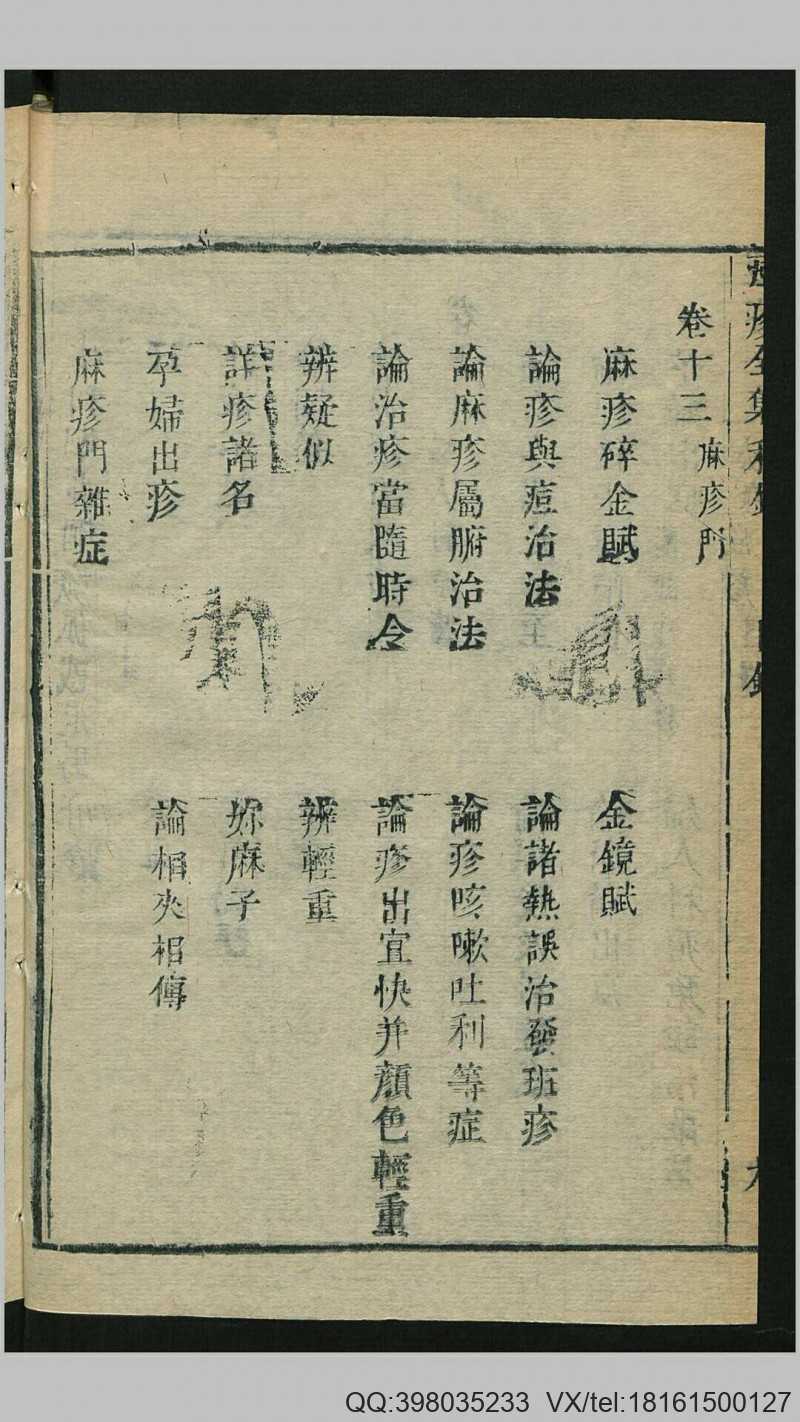 卷十三 麻疹門
麻疹碎金賦
金鏡賦
論疹與痘治法
論諸熱誤治發班疹
論麻疹屬腑治法
論疹咳嗽吐利等症
論治疹當隨時令
論疹出宜快并顏色輕重
辨疑似
辨輕重
詳疹諸名
妳麻子
孕婦出疹
論相夾相傳
麻疹門雜症
QQ:398035233 VX/tel:18161500127